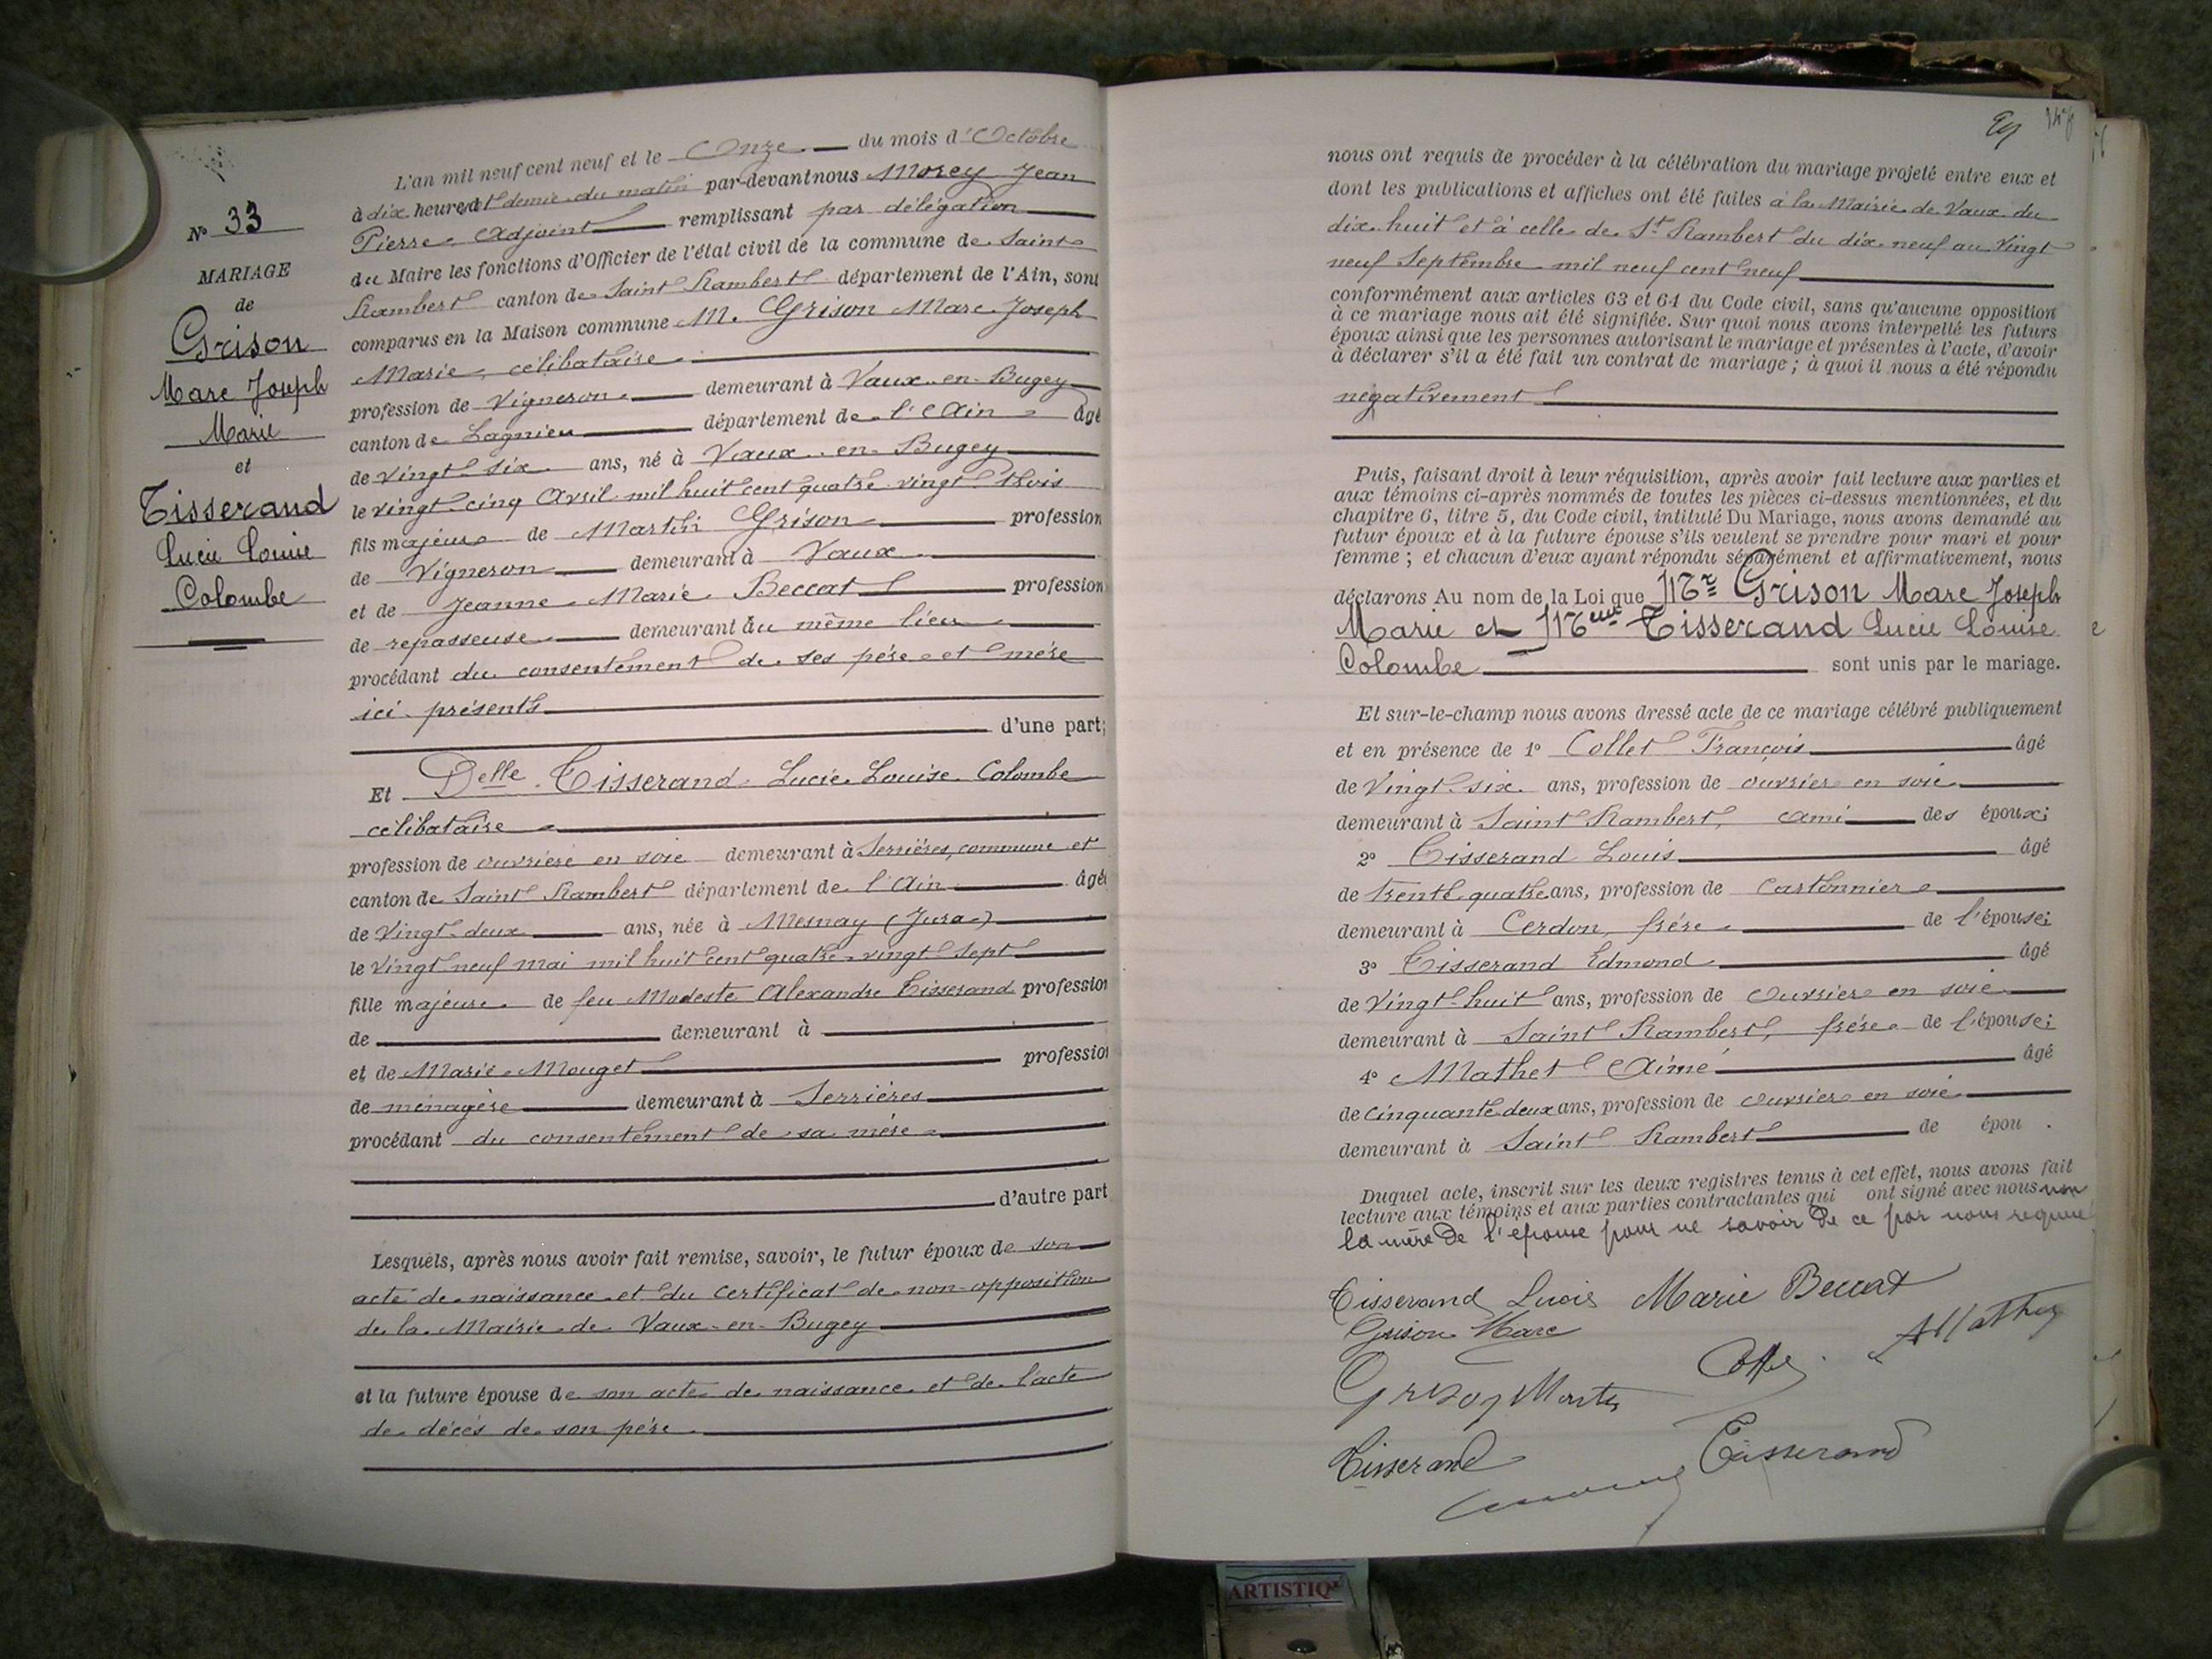 N° 33
MARIAGE
de
Grison
Marc Joseph
Marie
et
Tisserand
Lucie Louise
Colombe
L'an mil neuf cent neuf et le Onze du mois d'Octobre
à dix heures et demie du matin par-devant nous Morey Jean
Pierre Adjoint remplissant par délégation
du Maire les fonctions d'Officier de l'état civil de la commune de Saint
Rambert canton de Saint Rambert département de l'Ain, sont
comparus en la Maison commune M. Grison Marc Joseph
Marie, célibataire
profession de Vigneron demeurant à Vaux-en-Bugey
canton de Lagnieu département de l'Ain âgé
de vingt-six ans, né à Vaux-en-Bugey
le vingt-cinq Avril mil huit cent quatre vingt trois
fils majeur de Martin Grison profession
de Vigneron demeurant à Vaux
et de Jeanne Marie Beccat profession
de repasseuse demeurant au même lieu
procédant du consentement de ses père et mère
ici présents
d'une part;
Et Delle Tisserand Lucie Louise Colombe
célibataire
profession de ouvrière en soie demeurant à Serrières, commune et
canton de Saint Rambert département de l'Ain âgée
de Vingt-deux ans, née à Mesnay (Jura)
le Vingt neuf mai mil huit cent quatre-vingt sept
fille majeure de feu Modeste Alexandre Tisserand profession
de demeurant à
et de Marie Mouget profession
de ménagère demeurant à Serrières
procédant du consentement de sa mère
d'autre part
Lesquels, après nous avoir fait remise, savoir, le futur époux de son
acte de naissance et du certificat de non-opposition
de la Mairie de Vaux-en-Bugey
et la future épouse de son acte de naissance et de l'acte
de décès de son père
nous ont requis de procéder à la célébration du mariage projeté entre eux et
dont les publications et affiches ont été faites à la Mairie de Vaux du
dix-huit et à celle de St Rambert du dix-neuf au vingt
neuf Septembre mil neuf cent neuf
conformément aux articles 63 et 64 du Code civil, sans qu'aucune opposition
à ce mariage nous ait été signifiée. Sur quoi nous avons interpellé les futurs
époux ainsi que les personnes autorisant le mariage et présentes à l'acte, d'avoir
à déclarer s'il a été fait un contrat de mariage ; à quoi il nous a été répondu
négativement
Puis, faisant droit à leur réquisition, après avoir fait lecture aux parties et
aux témoins ci-après nommés de toutes les pièces ci-dessus mentionnées, et du
chapitre 6, titre 5, du Code civil, intitulé Du Mariage, nous avons demandé au
futur époux et à la future épouse s'ils veulent se prendre pour mari et pour
femme ; et chacun d'eux ayant répondu séparément et affirmativement, nous
déclarons Au nom de la Loi que Mr Grison Marc Joseph
Marie et Melle Tisserand Lucie Louise
Colombe sont unis par le mariage.
Et sur-le-champ nous avons dressé acte de ce mariage célébré publiquement
et en présence de 1° Collet François âgé
de Vingt-six ans, profession de ouvrier en soie
demeurant à Saint Rambert, ami des époux;
2° Tisserand Louis âgé
de trente quatre ans, profession de Cartonnier
demeurant à Cerdon, frère de l'épouse;
3° Tisserand Edmond âgé
de Vingt-huit ans, profession de Ouvrier en soie
demeurant à Saint Rambert, frère de l'épouse;
4° Mathet Aimé âgé
de cinquante deux ans, profession de ouvrier en soie
demeurant à Saint Rambert de épou .
Duquel acte, inscrit sur les deux registres tenus à cet effet, nous avons fait
lecture aux témoins et aux parties contractantes qui ont signé avec nous non
la mère de l'épouse pour ne savoir de ce par nous requise
Tisserand Lucie Marie Beccat
Grison Marc
Grison Martin
Tisserand Tisserand
ARTISTIQ